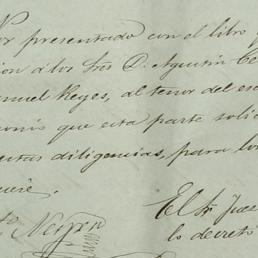 or presentado con el libro
ion á los Sres D. Agustin Ce
anuel Reyes, al tenor del es
que esta parte solic
diligencias, para los
uiere.
El Sr Jue
lo decretó